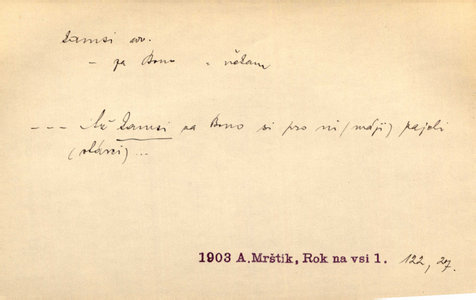 žamsi adv.
– za Brno „ někam
– – – Až žamsi za Brno si pro ni (máji) zajeli
(vlázci) ...
1903 A. Mrštík, Rok na vsi 1. 122, 27.